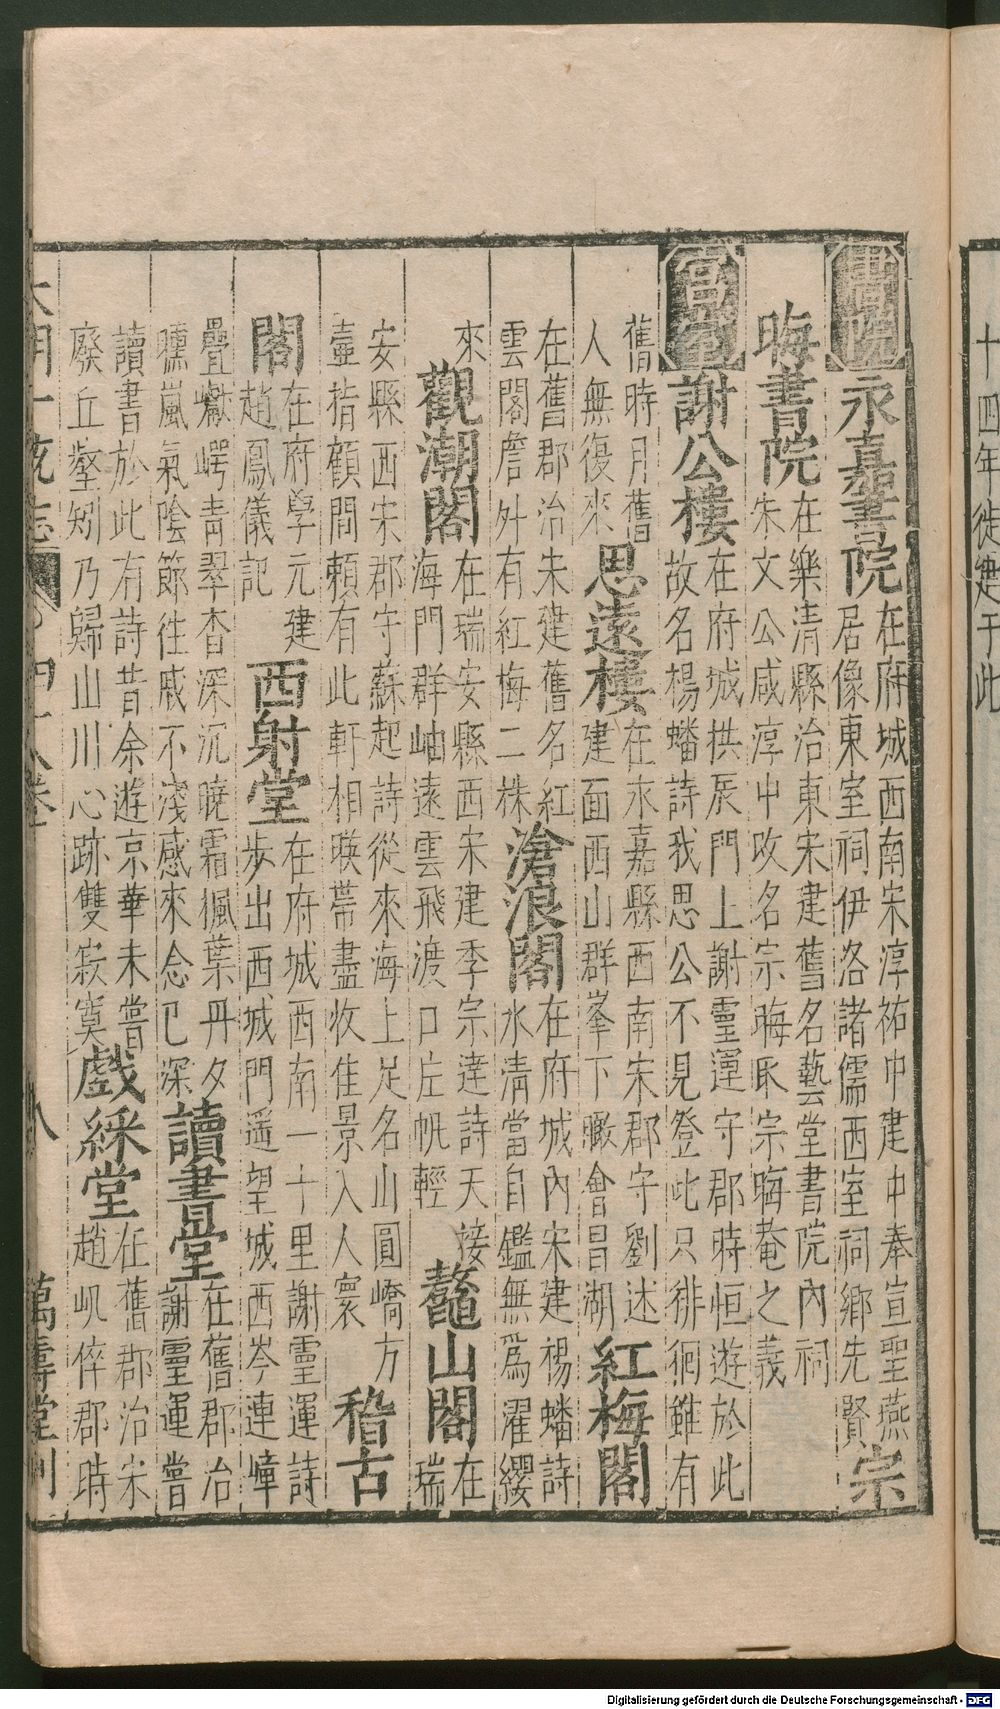 十四年徙建于此
書院
永嘉書院
在府城西南宋淳祐中建中奉宣聖燕
居像東室祠伊洛諸儒西室祠鄉先賢
宗
晦書院
在樂清縣治東宋建舊名藝堂書院內祠
朱文公咸淳中改名宗晦取宗晦菴之義
宮室
謝公樓
在府城拱辰門上謝靈運守郡時恒遊於此
故名楊蟠詩我思公不見登此只徘徊雖有
舊時月舊
人無復來
思遠樓
在永嘉縣西南宋郡守劉述
建面西山群峯下瞰會昌湖
紅梅閣
在舊郡治未建舊名紅
雲閣詹外有紅梅二株
滄浪閣
在府城內宋建楊蟠詩
水清當自鑑無爲濯纓
來
觀潮閣
在瑞安縣西宋建季宗逹詩天接
海門群岫遠雲飛渡口片帆輕
鼇山閣
在
瑞
安縣西宋郡守蘇起詩從來海上足名山圓嶠方
壷指顧間頼有此軒相暎帶盡收佳景入人寰
稽古
閣
在府學元建
趙鳳儀記
西射堂
在府城西南一十里謝靈運詩
步出西城門遥望城西岑連嶂
疊巘崿青翠杳深沉曉霜楓葉丹夕
曛嵐氣陰節徃戚不淺感來念已深
讀書堂
在舊郡治
謝靈運嘗
讀書於此有詩昔余遊京華未嘗
廢丘壑矧乃歸山川心跡雙寂寞
戲綵堂
在舊郡治宋
趙㞦倅郡時
大明一統志
四十八卷
八
萬壽堂刊
Digitalisierung gefördert durch die Deutsche Forschungsgemeinschaft - DFG